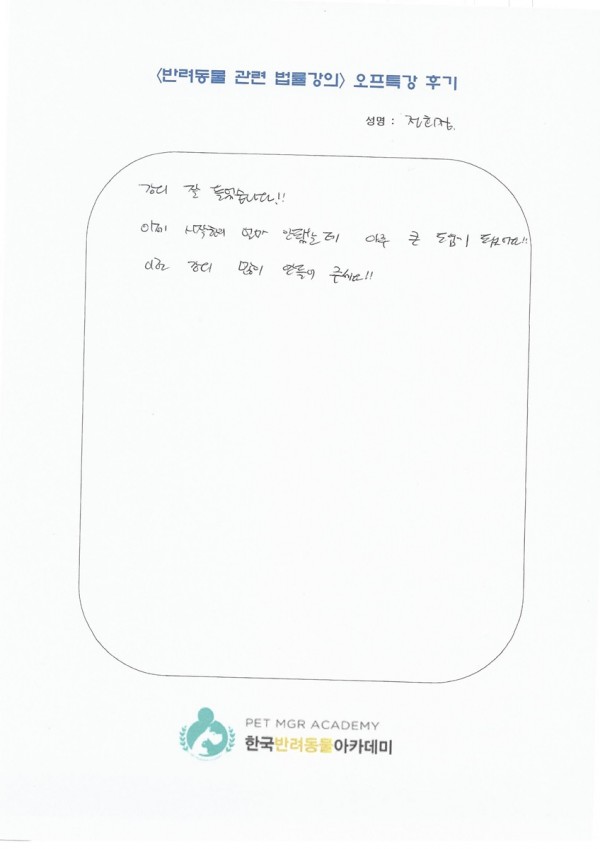 <반려동물 관련 법률강의> 오프특강 후기
성명 : 전희정.
강의 잘 들었습니다!!
아직 시작한지 얼마 안됐는데 아주 큰 도움이 되었어요!!
이런 강의 많이 만들어 주세요!!
PET MGR ACADEMY
한국반려동물아카데미